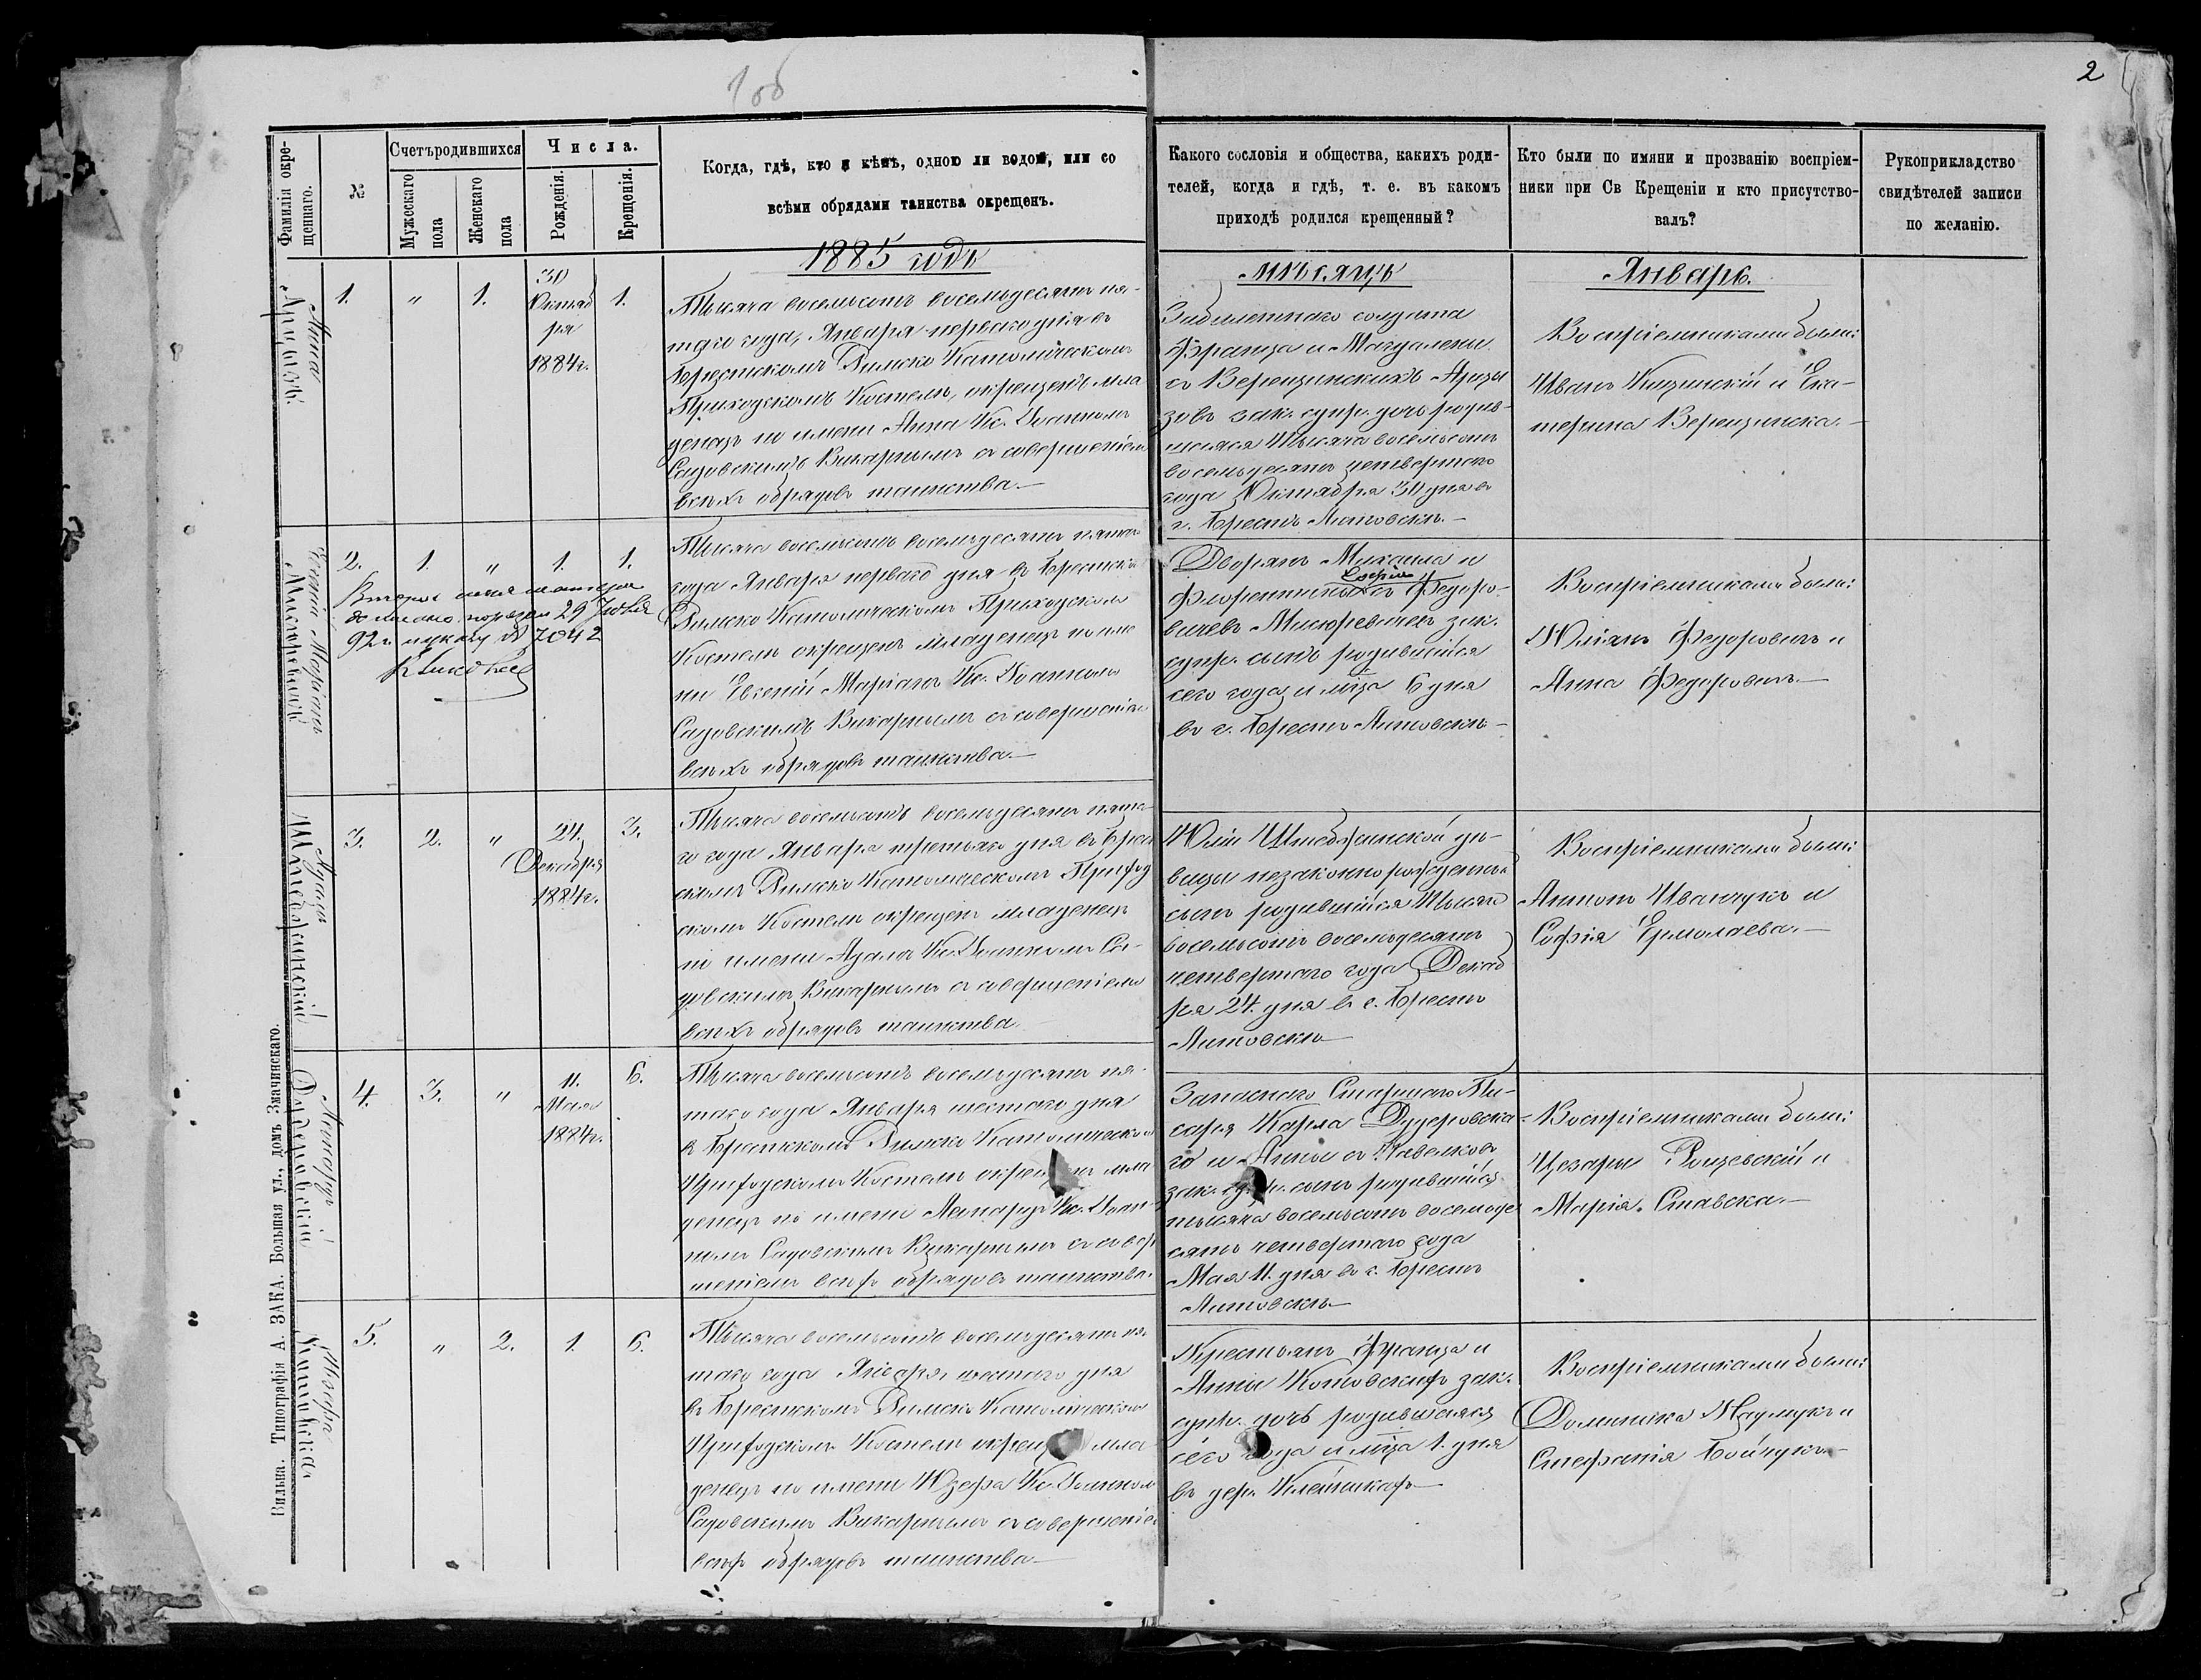 1 об
2
Фамилія окре-
щеннаго.
№
Счетъ родившихся
Мужескаго
пола
Женскаго
пола
Числа.
Рожденія.
Крещенія.
Когда, гдѣ, кто и кѣмъ, одною ли водою, или со
всѣми обрядами таинства окрещенъ.
Какого сословія и общества, какихъ роди-
телей, когда и гдѣ, т. е. въ какомъ
приходѣ родился крещенный?
Кто были по имяни и прозванію воспріем-
ники при Св Крещеніи и кто присутство-
валъ?
Рукоприкладство
свидѣтелей записи
по желанію.
1885 годъ
мѣсяцъ
Январь.
Анна
1.
"
1.
30
Октяб
ря
1884 г.
1.
Тысяча восемьсотъ восемьдесятъ пя-
таго года, Января перваго дня въ
Брестскомъ Римско Католическомъ
Приходскомъ Костелѣ, окрещенъ мла
денецъ по имени Анна Кс. Іоанномъ
Садовскимъ Викарнымъ съ совершеніемъ
всѣхъ обрядовъ таинства.—
солдата
Франца и Магдалены
съ Верещинскихъ Арцы
зовъ зак. супр. дочь родив-
шаяся Тысяча восемьсотъ
восемьдесятъ четвертаго
года Октября 30 дня въ
г. Брестъ Литовскѣ.—
Воспріемниками были:
Иванъ и Ека-
терина Верещинска.—
Евгеній Маріанъ
2.
1.
"
1.
1.
29 Іюня
92 г. № 7042
Тысяча восемьсотъ восемьдесятъ пятаго
года Января перваго дня въ Брестскомъ
Римско Католическомъ Приходскомъ
Костелѣ окрещенъ младенецъ по име
ни Евгеній Маріанъ Кс. Іоанномъ
Садовскимъ Викарнымъ съ совершеніемъ
всѣхъ обрядовъ таинства.—
Дворянъ Михаила и
Софіи
съ Федоро-
вичевъ зак.
супр. сынъ родившійся
сего года и мѣца 6 дня
въ г. Брестъ Литовскѣ—
Воспріемниками были:
Юліанъ Федоровичъ и
Анна Федоровичъ.—
Адамъ
3.
2.
"
24.
Декабря
1884 г.
3.
Тысяча восемьсотъ восемьдесятъ пята-
го года Января третьяго дня въ Брест
скомъ Римско Католическомъ Приход
скомъ Костелѣ окрещенъ младенецъ
по имени Адамъ Кс. Іоанномъ Са-
довскимъ Викарнымъ съ совершеніемъ
всѣхъ обрядовъ таинства.—
Юліи дѣ-
вицы незаконнорожденный
сынъ родившійся Тысяча
восемьсотъ восемьдесятъ
четвертаго года Декаб
ря 24 дня въ г. Брестъ
Литовскѣ—
Воспріемниками были:
Антонъ Иванчукъ и
Софія Ермолаева.—
4.
3.
"
11.
Мая
1884 г.
6.
Тысяча восемьсотъ восемьдесятъ пя-
таго года Января шестаго дня
въ Брестскомъ Римско Католическомъ
Приходскомъ Костелѣ окрещенъ мла
денецъ по имени Кс. Іоан-
номъ Садовскимъ Викарнымъ съ совер
шеніемъ всѣхъ обрядовъ таинства.
Запаснаго Старшаго Пи-
саря Карла
го и Анны съ Павелковъ
зак. супр. сынъ родившійся
тысяча восемьсотъ восемьде
сятъ четвертаго года
Мая 11. дня въ г. Брестъ
Литовскѣ—
Воспріемниками были:
Цезарій и
Марія Ставска.—
Юзефа
Котовска
5.
"
2.
1.
6.
Тысяча восемьсотъ восемьдесятъ пя-
таго года Января шестаго дня
въ Брестскомъ Римско Католическомъ
Приходскомъ Костелѣ окрещенъ мла
денецъ по имени Юзефа Кс. Іоанномъ
Садовскимъ Викарнымъ съ совершеніемъ
всѣхъ обрядовъ таинства—
Крестьянъ Франца и
Анны Котовскихъ зак.
супр. дочь родившаяся
сего года и мѣца 1. дня
въ дер. Клейникахъ—
Воспріемниками были:
Доминика и
Стефанія Бойчукъ.—
Вильна. Типографія А. ЗАКА. Большая ул., домъ Значинскаго.